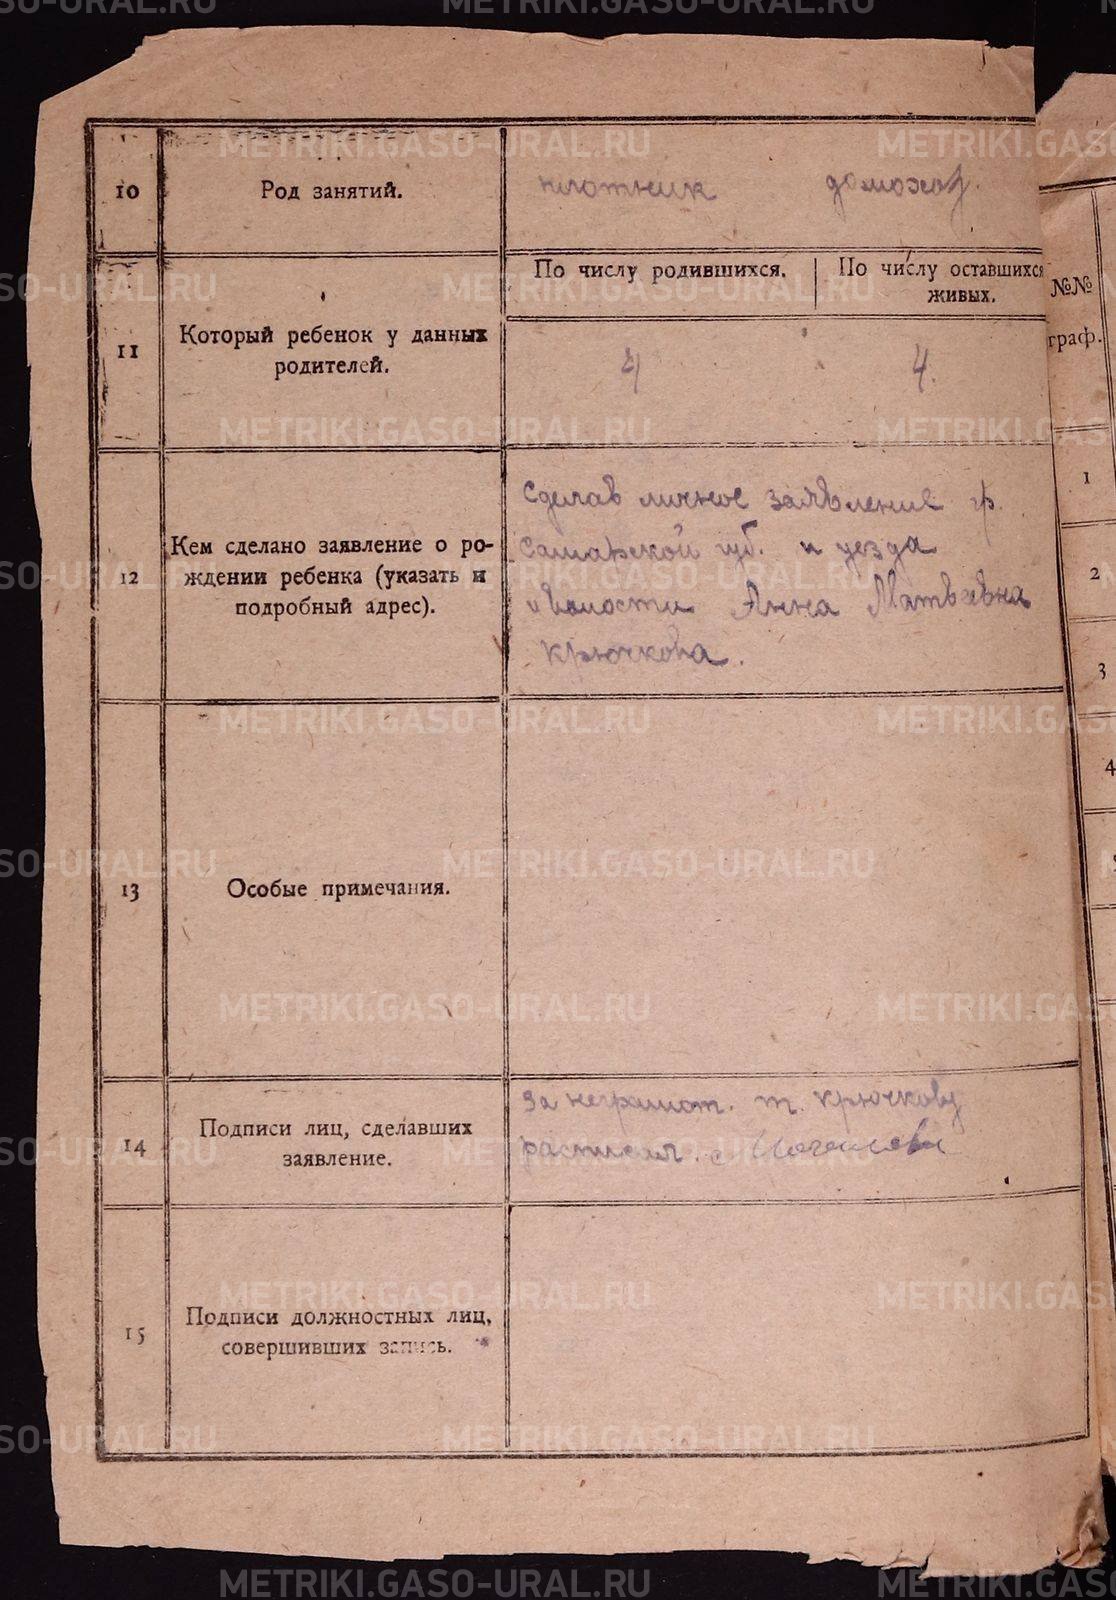 10
Род занятий.
плотник домохоз.
11
Который ребенок у данных
родителей.
По числу родившихся.
По числу оставшихся
живых.
4
4.
12
Кем сделано заявление о ро-
ждении ребенка (указать и
подробный адрес).
Сделав личное заявление гр.
Самарской губ. и уезда
и волости Анна Матвеевна
Крючкова.
13
Особые примечания.
14
Подписи лиц, сделавших
заявление.
За неграмот. т. Крючкову
15
Подписи должностных лиц,
совершивших запись.
№№
граф.
1
2
3
4
METRIKI.GASO-URAL.RU